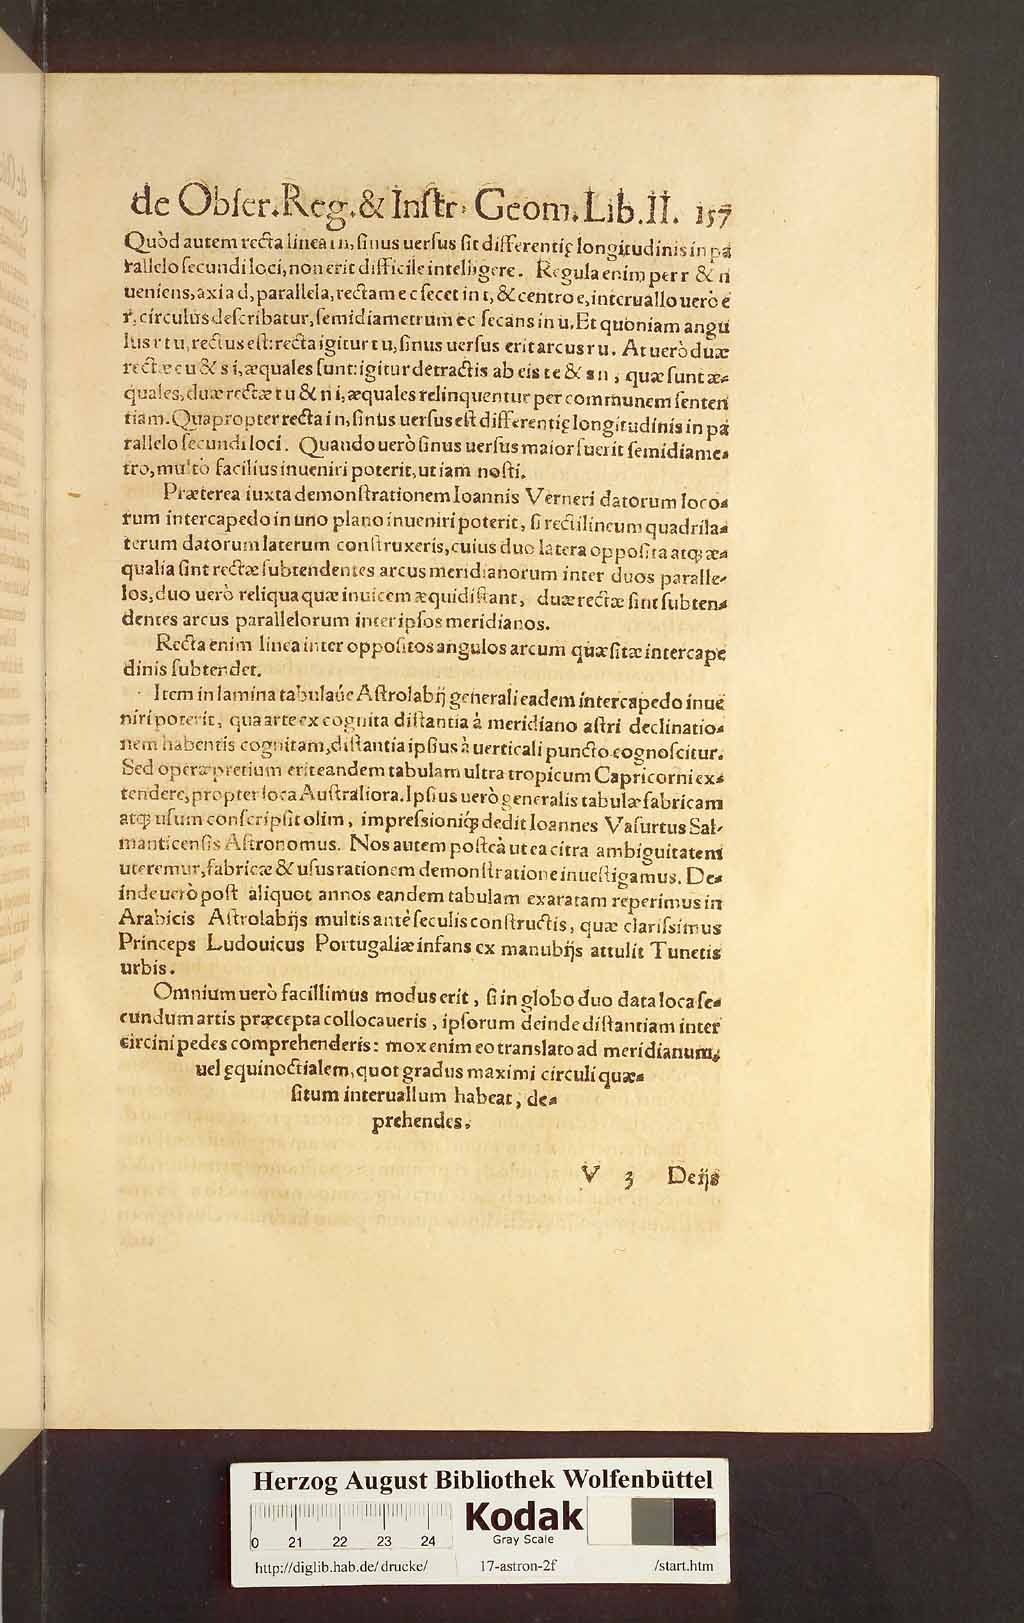 de Obſer. Reg. & Inſtr. Geom. Lib. II. 157
Quòd autem recta linea i n, ſinus uerſus ſit differentię longitudinis in pa
rallelo ſecundi loci, non erit difficile intelligere. Regula enim per r & n
ueniens, axi a d, parallela, rectam e c ſecet in t, & centro e, interuallo uerò e
r, circulus deſcribatur, ſemidiametrum e c ſecans in u. Et quoniam angu
lus r t u, rectus eſt: recta igitur t u, ſinus uerſus erit arcus r u. At uerò duæ
rectæ e u & s i, æquales ſunt: igitur detractis ab eis t e & s n, quæ ſunt æ=
quales, duæ rectæ t u & n i, æquales relinquentur per communem ſenten
tiam. Quapropter recta i n, ſinus uerſus eſt differentię longitudinis in pa
rallelo ſecundi loci. Quando uerò ſinus uerſus maior fuerit ſemidiame=
tro, multò facilius inueniri poterit, ut iam noſti.
Præterea iuxta demonſtrationem Ioannis Verneri datorum loco=
rum intercapedo in uno plano inueniri poterit, ſi rectilineum quadrila=
terum datorum laterum conſtruxeris, cuius duo latera oppoſita atq; æ=
qualia ſint rectæ ſubtendentes arcus meridianorum inter duos paralle=
los, duo uerò reliqua quæ inuicem æquidiſtant, duæ rectæ ſint ſubten=
dentes arcus parallelorum inter ipſos meridianos.
Recta enim linea inter oppoſitos angulos arcum quæſitæ intercape
dinis ſubtendet.
Item in lamina tabulaúe Aſtrolabij generali eadem intercapedo inue
niri poterit, qua arte ex cognita diſtantia à meridiano aſtri declinatio=
nem habentis cognitam, diſtantia ipſius à uerticali puncto cognoſcitur.
Sed operæpretium erit eandem tabulam ultra tropicum Capricorni ex=
tendere, propter loca Auſtraliora. Ipſius uerò generalis tabulæ fabricam
atq; uſum conſcripſit olim, impreſsioniq́; dedit Ioannes Vaſurtus Sal=
manticenſis Aſtronomus. Nos autem poſteà ut ea citra ambiguitatem
uteremur, fabricæ & uſus rationem demonſtratione inueſtigamus. De=
inde uerò poſt aliquot annos eandem tabulam exaratam reperimus in
Arabicis Aſtrolabijs multis antè ſeculis conſtructis, quæ clariſsimus
Princeps Ludouicus Portugaliæ infans ex manubijs attulit Tunetis
urbis.
Omnium uerò facillimus modus erit, ſi in globo duo data loca ſe=
cundum artis præcepta collocaueris, ipſorum deinde diſtantiam inter
circini pedes comprehenderis: mox enim eo translato ad meridianum,
uel ęquinoctialem, quot gradus maximi circuli quæ=
ſitum interuallum habeat, de=
prehendes.
V 3 De ijs
Herzog August Bibliothek Wolfenbüttel
Kodak
Gray Scale
0 21 22 23 24
http://diglib.hab.de/drucke/ 17-astron-2f /start.htm